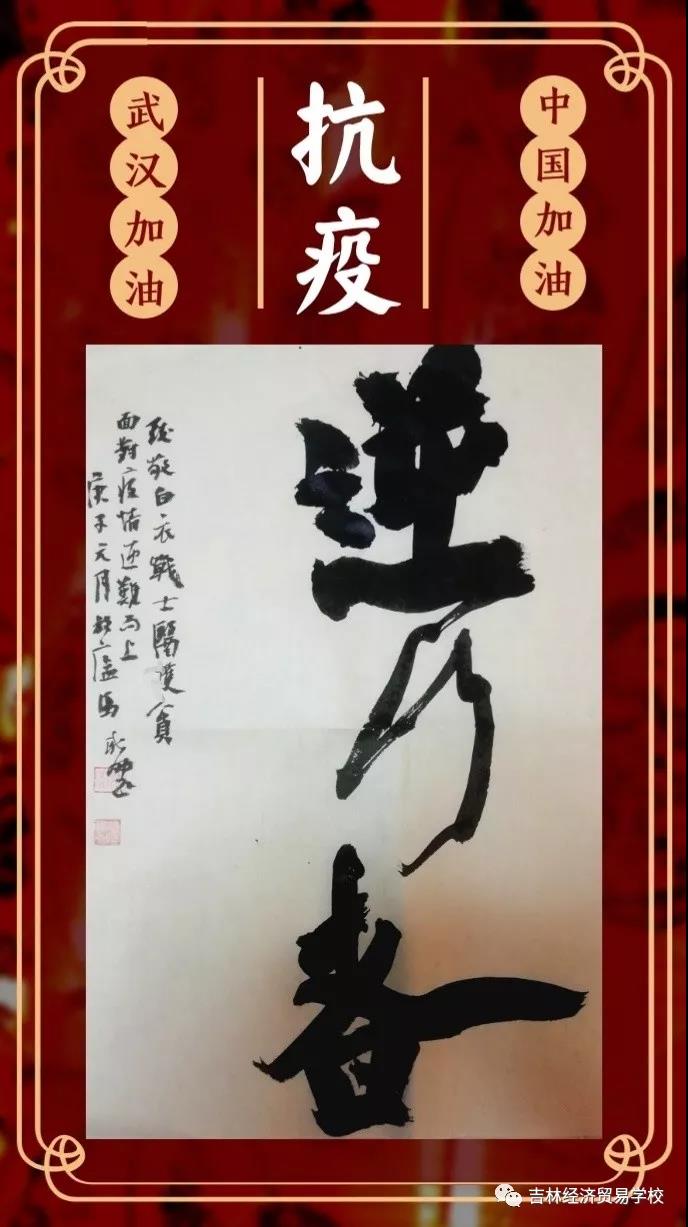 武汉加油
抗疫
中国加油
逆行者
致敬白衣戰士醫護人員
面對疫情迎難而上
庚子元月
吉林经济贸易学校